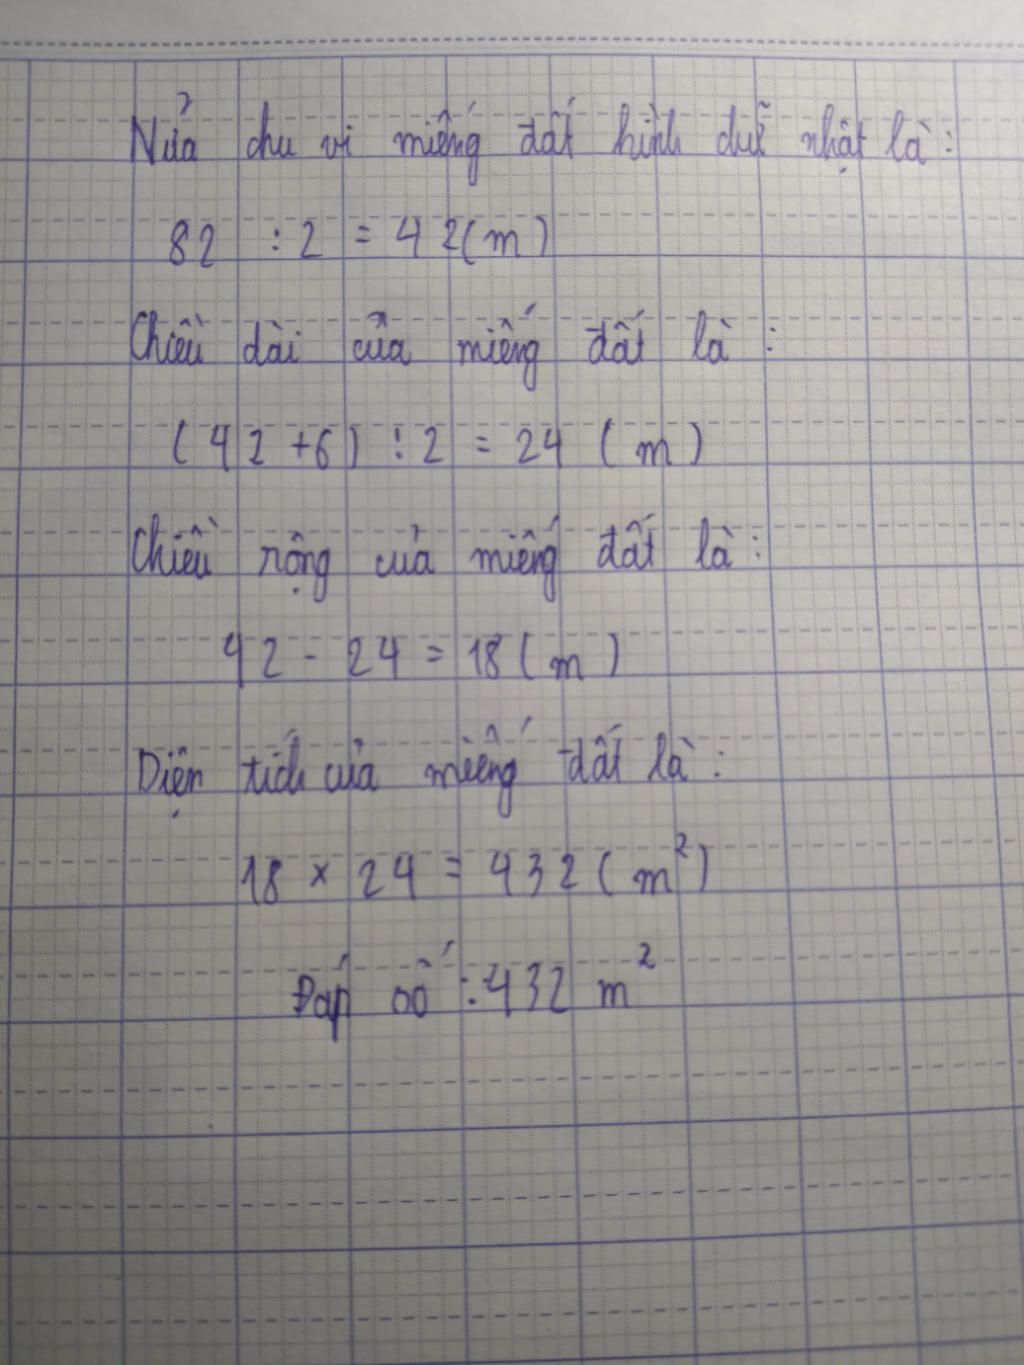 Nửa chu vi miếng đất hình chữ nhật là:
82 : 2 = 42 (m)
Chiều dài của miếng đất là:
(42 + 6) : 2 = 24 (m)
Chiều rộng của miếng đất là:
42 - 24 = 18 (m)
Diện tích của miếng đất là:
18 × 24 = 432 (m²)
Đáp số: 432 m²